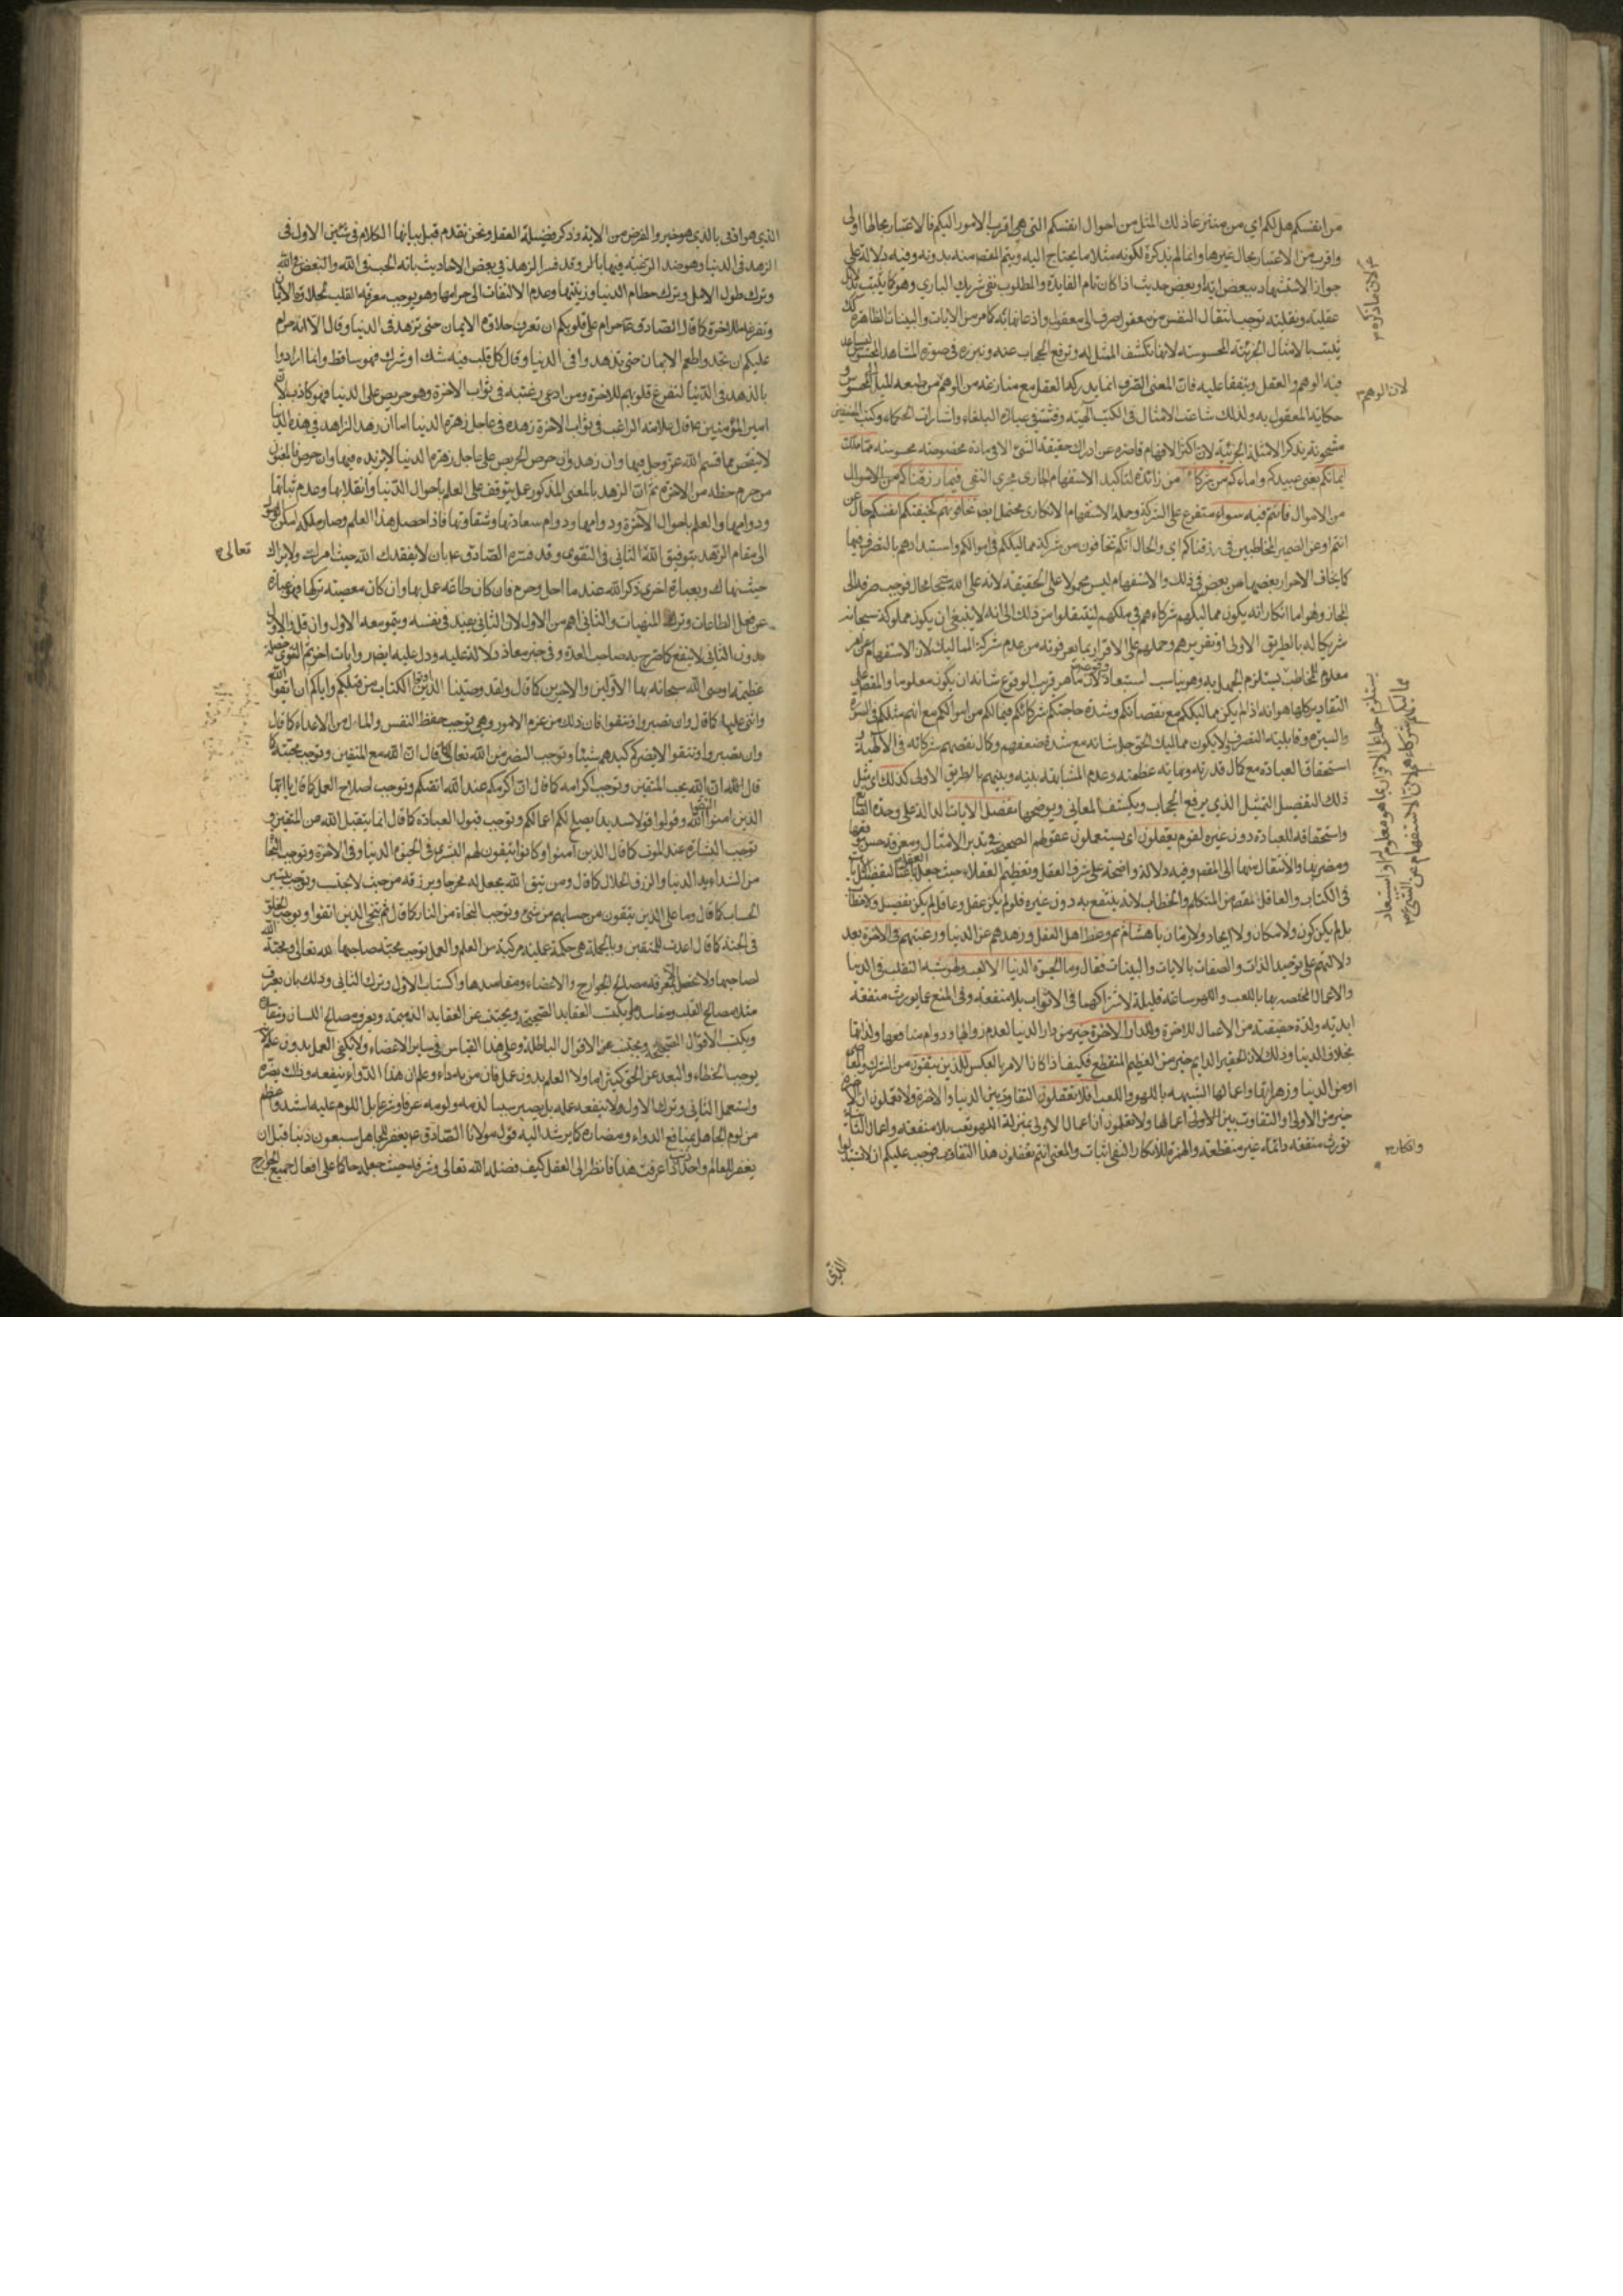 من انفسكم هل لكم اي من منتزعا ذلك المثل من احوال انفسكم التي هي اقرب الامور اليكم فالاعتبار بحالها اولى
واقرب من الاعتبار بحال غيرها وانما لم يذكره لكونه مثلا ما يحتاج اليه ويتم المقصود منه بدونه وفيه دلالة على
جواز الاستشهاد ببعض اية او بعض حديث اذا كان تام الفايدة والمطلوب نفي شريك الباري وهو كما يثبت بدلايل
عقلية ونقلية توجب انتقال النفس من معقول صرف الى معقول واذعانها به كما مر من الايات والبينات الظاهرة كذلك
يثبت بالامثال الجزئية المحسوسة لانها تكشف الممثل له وترفع الحجاب عنه وتبرزه في صورة المشاهد المحسوس ليساعد
فيه الوهم والعقل ويتفقا عليه فان المعنى الصرف انما يدركه العقل مع منازعة من الوهم من طبعه الميل الى المحسوس و
حكاية المعقول به ولذلك شاعت الامثال في الكتب الالهية وفشت في عبارة البلغاء واشارات الحكماء وكتب المصنفين
مشحونة بذكر الامثلة الجزئية لان اكثر الافهام قاصرة عن ادراك حقيقة الشيء الا في مادة مخصوصة محسوسة مما ملكت
ايمانكم يعني عبيدكم واماءكم من شركاء من زائدة لتاكيد الاستفهام الجاري مجرى النفي فيما رزقناكم من الاموال
من الاموال فانتم فيه سواء متفرع على الشركة وجملة الاستفهام الانكاري محتمل ايضا تخافونهم كخيفتكم انفسكم حال عن
انتم او عن الضمير المخاطبين في رزقناكم اي والحال انكم تخافون من شركة مماليككم في اموالكم واستبدادهم بالتصرف فيها
كما يخاف الاحرار بعضهم من بعض في ذلك والاستفهام ليس محمولا على الحقيقة لانه على الله سبحانه محال فوجب صرفه الى
المجاز وهو اما انكار انه يكون مماليكهم شركاءهم في ملكهم لينتقلوا من ذلك الى انه لا ينبغي ان يكون مملوكه سبحانه
شريكا له بالطريق الاولى او تقريرهم وحملهم على الاقرار بما يعرفونه من عدم شركة المماليك لان الاستفهام عن امر
معلوم للمخاطب يستلزم الجهل به وهو يناسب استبعاد وقوعه لان ما هو قريب الوقوع شانه ان يكون معلوما والمقصود على
التقادير كلها هو انه اذا لم يكن مماليككم مع نقصانكم وشدة حاجتكم شركائكم فيما لكم من اموالكم مع انهم مثلكم في الصورة
والسيرة وقابلية التصرف لا يكون مماليك الحق جل شانه مع شدة ضعفهم وكمال نقصهم شركائه في الالهية و
استحقاق العبادة مع كمال قدرته ونهاية عظمته وعدم المشابهة بينه وبينهم بالطريق الاولى كذلك اي مثل
ذلك التفصيل التمثيل الذي يرفع الحجاب ويكشف المعاني ويوضحها نفصل الايات الدالة على وحدة الصانع
واستحقاقه للعبادة دون غيره لقوم يعقلون اي يستعملون عقولهم الصحيحة في تدبر الامثال ومعرفة حسن موقعها
ومضربها والانتقال منها الى المقصود وفيه دلالة واضحة على شرف العقل وتعظيم العقلاء حيث جعل العقل غاية لتفصيل الايات
في الكتاب والعاقل المقصود من المتكلم والخطاب لانه ينتفع به دون غيره فلو لم يكن عقل وعاقل لم يكن تفصيل ولا خطاب
بل لم يكن كون ولا مكان ولا ايجاد ولا زمان يا هشام ثم وعظ اهل العقل وزهدهم عن الدنيا ورغبهم في الاخرة بعد
دلالتهم على توحيد الذات والصفات بالايات والبينات فقال وما الحيوة الدنيا الا لعب ولهو شبه التقلب في الدنيا
والاعمال المختصة بها باللعب واللهو ساعة قليلة لاشتراكهما في الاتعاب بلا منفعة وفي المنع عما يورث منفعة
ابدية ولذة حقيقية من الاعمال للاخرة وللدار الاخرة خير من دار الدنيا لعدم زوالها ودوام منافعها ولذاتها
بخلاف الدنيا وذلك لان الحقير الدايم خير من العظيم المنقطع فكيف اذا كان الامر بالعكس للذين يتقون من الشرك والمعاصي
او من الدنيا وزهراتها واعمالها الشبيهة باللهو واللعب افلا تعقلون التفاوت بين الدنيا والاخرة ولا تعلمون ان الاخرة
خير من الاولى او التفاوت بين الاولى اعمالها ولا تعلمون ان اعمال الاولى بمنزلة اللهو تعب بلا منفعة واعمال الثانية
تورث منفعة دائمة غير منقطعة والهمزة للانكار النفي اثبات والمعنى انتم تعقلون هذا التفاوت فوجب عليكم ان لا تستبدلوا
لان ما ذكره
لان الوهم
يستلزم حملهم على الاقرار بما هو معلوم لهم او استبعاد
مماليكهم شركاءهم لان الاستفهام عن الشيء
وانكاره
الذي
الذي هو ادنى بالذي هو خير والغرض من الاية وذكر فضيلة العقل ونحن نقدم قبل بيانها الكلام في شيئين الاول في
الزهد في الدنيا وهو ضد الرغبة فيها بالمرة وقد فسر الزهد في بعض الاحاديث بانه الحب في الله والبغض في الله
وترك طول الامل وترك حطام الدنيا وزينتها وعدم الالتفات الى حرامها وهو يوجب معرفة القلب بحلاوة الايمان
وتفرغه للاخرة كما قال الصادق ع حرام على قلوبكم ان تعرف حلاوة الايمان حتى تزهد في الدنيا وقال الا انه حرام
عليكم ان تجدوا طعم الايمان حتى تزهدوا في الدنيا وقال كل قلب فيه شك او شرك فهو ساقط وانما ارادوا
بالزهد في الدنيا لتفرغ قلوبهم للاخرة ومن ادعى رغبته في ثواب الاخرة وهو حريص على الدنيا فهو كاذب لان
امير المؤمنين ع قال علامة الراغب في ثواب الاخرة زهده في عاجل زهرة الدنيا اما ان زهد الزاهد في هذه الدنيا
لا ينقصه مما قسم الله عز وجل فيها وان زهد وان حرص الحريص على عاجل زهرة الدنيا لا يزيده فيها وان حرص فالمغبون
من حرم حظه من الاخرة ثم ان الزهد بالمعنى المذكور عمل يتوقف على العلم باحوال الدنيا وانقلابها وعدم ثباتها
ودوامها والعلم باحوال الآخرة ودوامها ودوام سعادتها وشقاوتها فاذا حصل هذا العلم وصار ملكة
الى مقام الزهد بتوفيق الله تعالى الثاني في التقوى وقد فسره الصادق ع بان لا يفقدك الله حيث امرك ولا يراك
حيث نهاك وبعبارة اخرى ذكر الله عند ما احل وحرم فان كان طاعة عمل بها وان كان معصية تركها فهو عبارة
عن فعل الطاعات وترك المنهيات والثاني اهم من الاول لان الثاني يفيد في نفسه وينمو معه الاول وان قل والاول
بدون الثاني لا ينفع كما صرح به صاحب العدة وفي خبر معاذ دلالة عليه ودل عليه ايضا روايات اخر ثم التقوى خصلة
عظيمة اوصى الله سبحانه بها الاولين والاخرين كما قال ولقد وصينا الذين اوتوا الكتاب من قبلكم واياكم ان اتقوا الله
واثنى عليها كما قال وان تصبروا وتتقوا فان ذلك من عزم الامور وهي توجب حفظ النفس والمال من الاعداء كما قال
وان تصبروا وتتقوا لا يضركم كيدهم شيئا وتوجب النصر من الله تعالى كما قال ان الله مع المتقين وتوجب محبته كما
قال الله ان الله يحب المتقين وتوجب اكرامه كما قال ان اكرمكم عند الله اتقيكم وتوجب اصلاح العمل كما قال يا ايها
الذين امنوا اتقوا الله وقولوا قولا سديدا يصلح لكم اعمالكم وتوجب قبول العبادة كما قال انما يتقبل الله من المتقين و
توجب البشارة عند الموت كما قال الذين آمنوا وكانوا يتقون لهم البشرى في الحيوة الدنيا وفي الاخرة وتوجب النجاة
من الشدايد الدنيا والرزق الحلال كما قال ومن يتق الله يجعل له مخرجا ويرزقه من حيث لا يحتسب وتوجب تيسير
الحساب كما قال وما على الذين يتقون من حسابهم من شيء وتوجب النجاة من النار كما قال ثم ننجي الذين اتقوا وتوجب الخلود
في الجنة كما قال اعدت للمتقين وبالجملة هي حكمة عملية مركبة من العلم والعمل توجب محبة صاحبها لله تعالى ومحبة الله
لصاحبها ولا تحصل الا بمعرفة مصالح الجوارح والاعضاء ومفاسدها واكتساب الاول وترك الثاني وذلك بان يعرف
مثلا مصالح القلب ومفاسده ويكتسب العقايد الصحيحة ويجتنب عن العقايد الذميمة ويعرف مصالح اللسان ومفاسده
ويكتسب الاقوال الصحيحة ويجتنب عن الاقوال الباطلة وعلى هذا القياس في ساير الاعضاء ولا يكفي العمل بدون علم لانه
يوجب الخطاء والبعد عن الحق كثيرا ما ولا العلم بدون عمل فان من به داء وعلم ان هذا الدواء ينفعه وذلك يضره
واستعمل الثاني وترك الاول لا ينفعه علمه بل يصير سببا لذمه ولومه عرفا وشرعا بل اللوم عليه اشد واعظم
من لوم الجاهل بمنافع الدواء ومضاره كما يرشد اليه قول مولانا الصادق ع يغفر للجاهل سبعون ذنبا قبل ان
يغفر للعالم ذنب واحد اذا عرفت هذا فانظر الى العقل كيف فضله الله تعالى وشرفه حيث جعله حاكما على افعال جميع الجوارح
تعالى